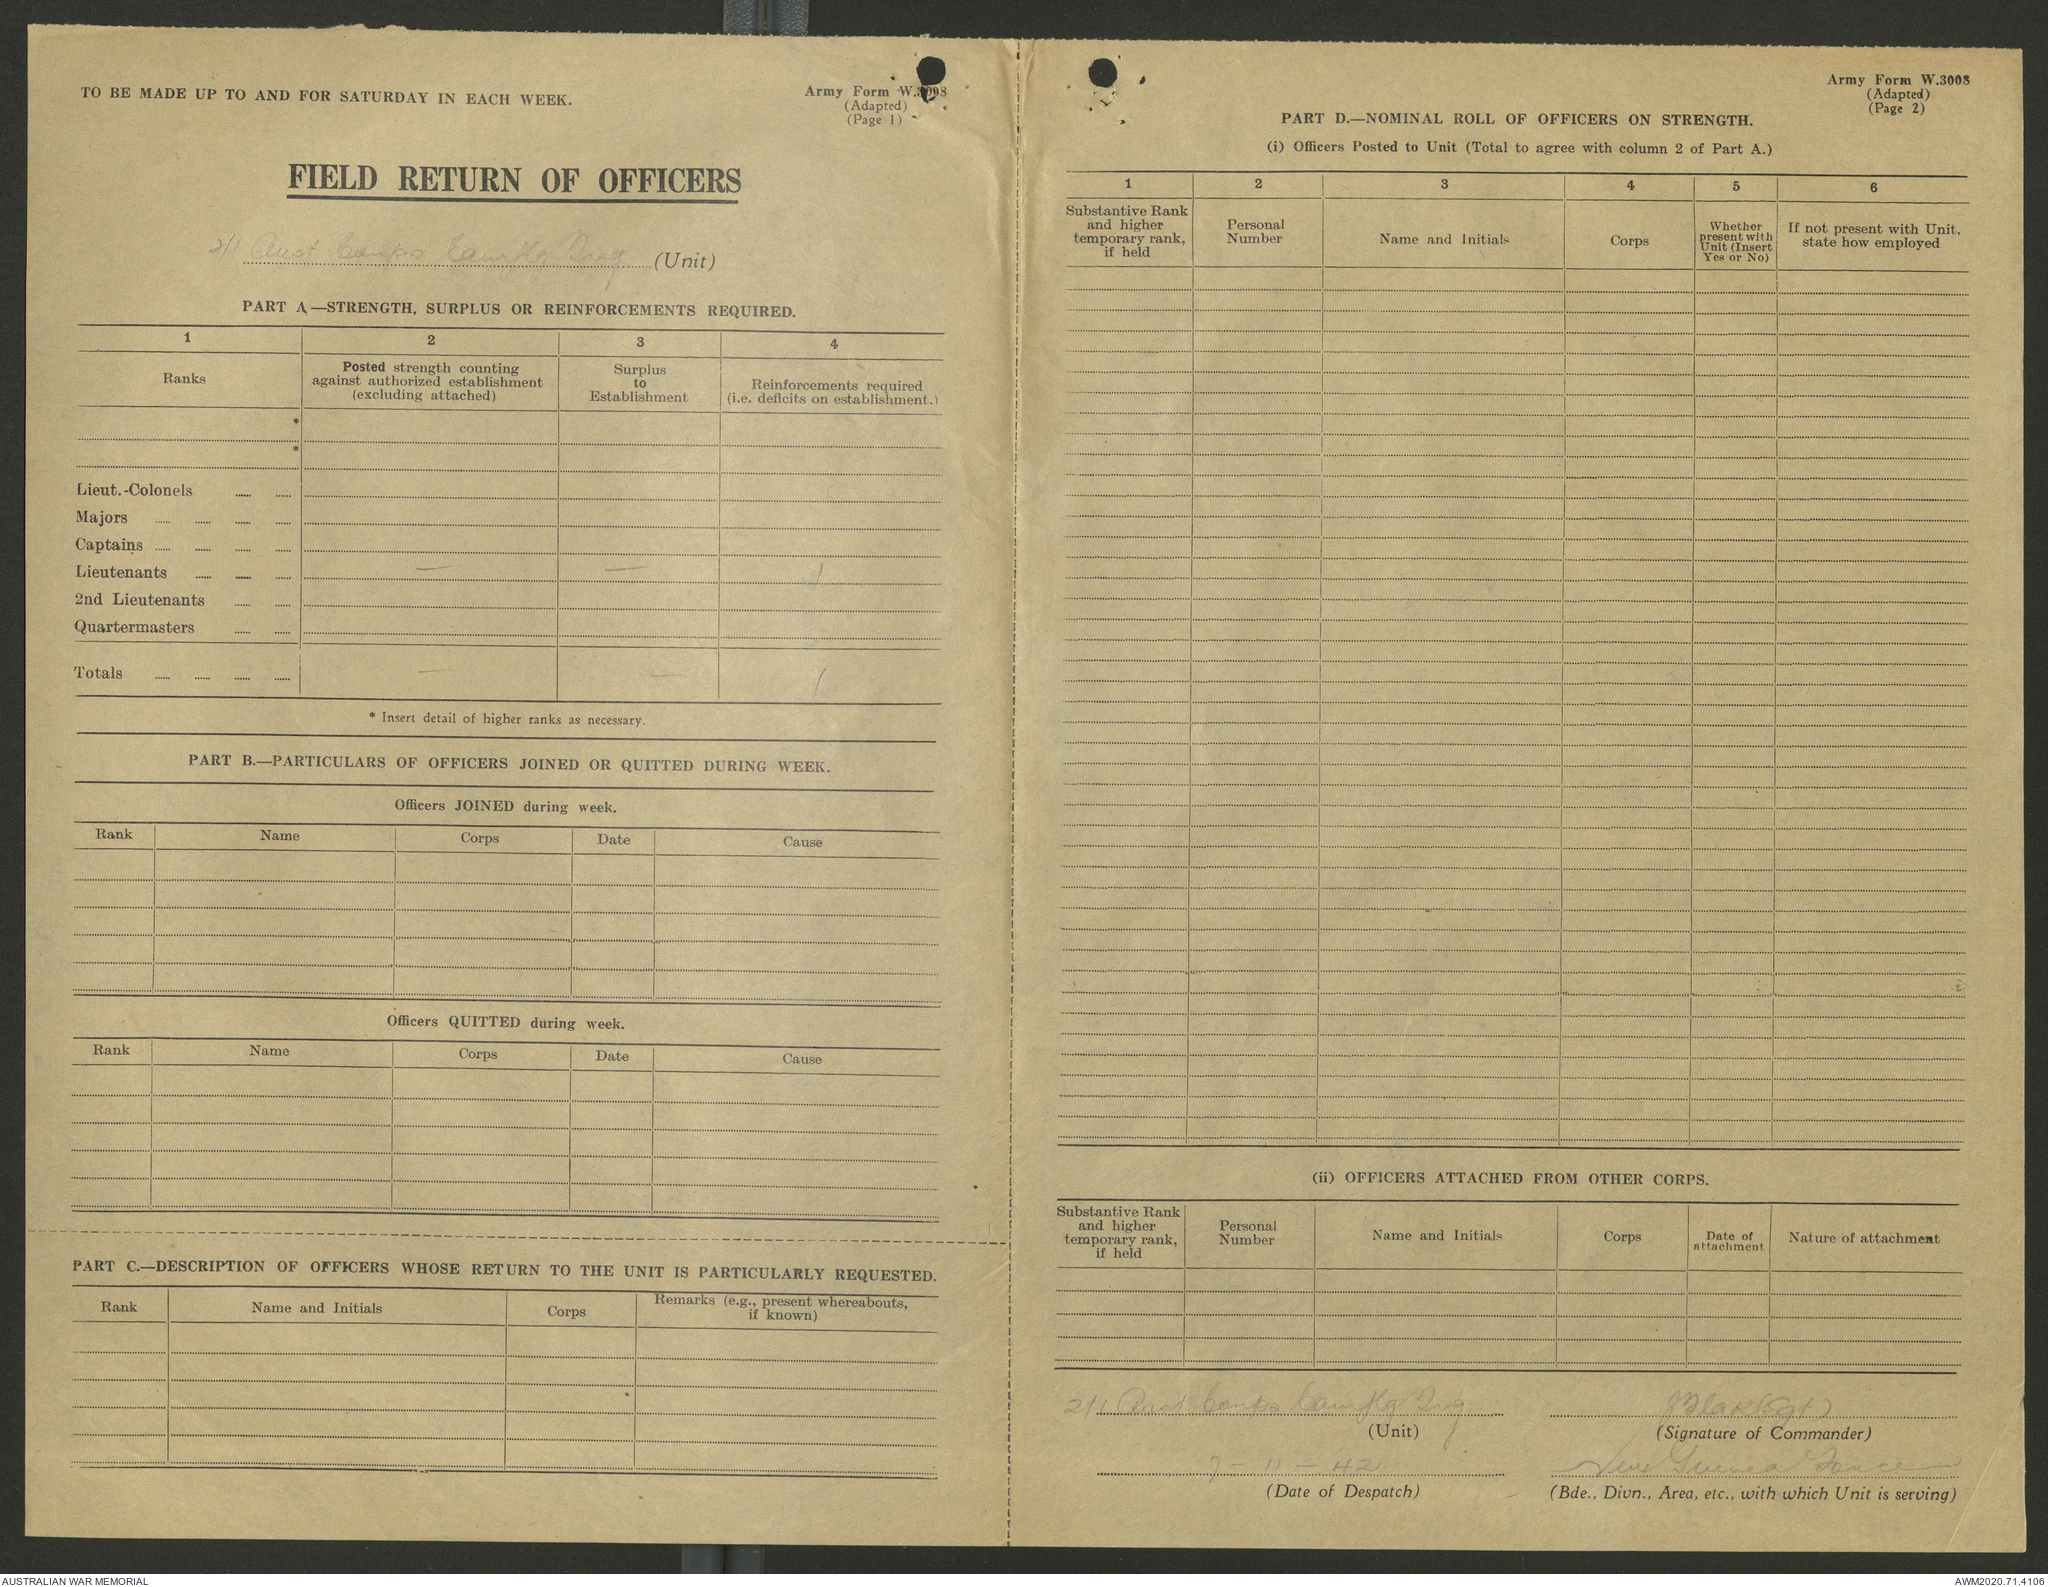 TO BE MADE UP TO AND FOR SATURDAY IN EACH WEEK.
Army Form W.3008
(Adapted)
(Page 1)
FIELD RETURN OF OFFICERS
2/1 Aust Corps Camflg Trg (Unit)
PART A.—STRENGTH, SURPLUS OR REINFORCEMENTS REQUIRED.
1 2 3 4
Ranks
Posted strength counting
against authorized establishment
(excluding attached)
Surplus
to
Establishment
Reinforcements required
(i.e. deficits on establishment.)
*
*
Lieut.-Colonels
Majors
Captains
Lieutenants — — 1
2nd Lieutenants
Quartermasters
Totals — — 1
* Insert detail of higher ranks as necessary.
PART B.—PARTICULARS OF OFFICERS JOINED OR QUITTED DURING WEEK.
Officers JOINED during week.
Rank Name Corps Date Cause
Officers QUITTED during week.
Rank Name Corps Date Cause
PART C.—DESCRIPTION OF OFFICERS WHOSE RETURN TO THE UNIT IS PARTICULARLY REQUESTED.
Rank Name and Initials Corps
Remarks (e.g., present whereabouts,
if known)
Army Form W.3008
(Adapted)
(Page 2)
PART D.—NOMINAL ROLL OF OFFICERS ON STRENGTH.
(i) Officers Posted to Unit (Total to agree with column 2 of Part A.)
1 2 3 4 5 6
Substantive Rank
and higher
temporary rank,
if held
Personal
Number
Name and Initials
Corps
Whether
present with
Unit (Insert
Yes or No)
If not present with Unit,
state how employed
(ii) OFFICERS ATTACHED FROM OTHER CORPS.
Substantive Rank
and higher
temporary rank,
if held
Personal
Number
Name and Initials
Corps
Date of
attachment
Nature of attachment
2/1 Aust Corps Camflg Trg
(Unit)
(Sgt)
(Signature of Commander)
7 - 11 - 42
(Date of Despatch)
New Guinea Force
(Bde., Divn., Area, etc., with which Unit is serving)
AUSTRALIAN WAR MEMORIAL
AWM2020.71.4106